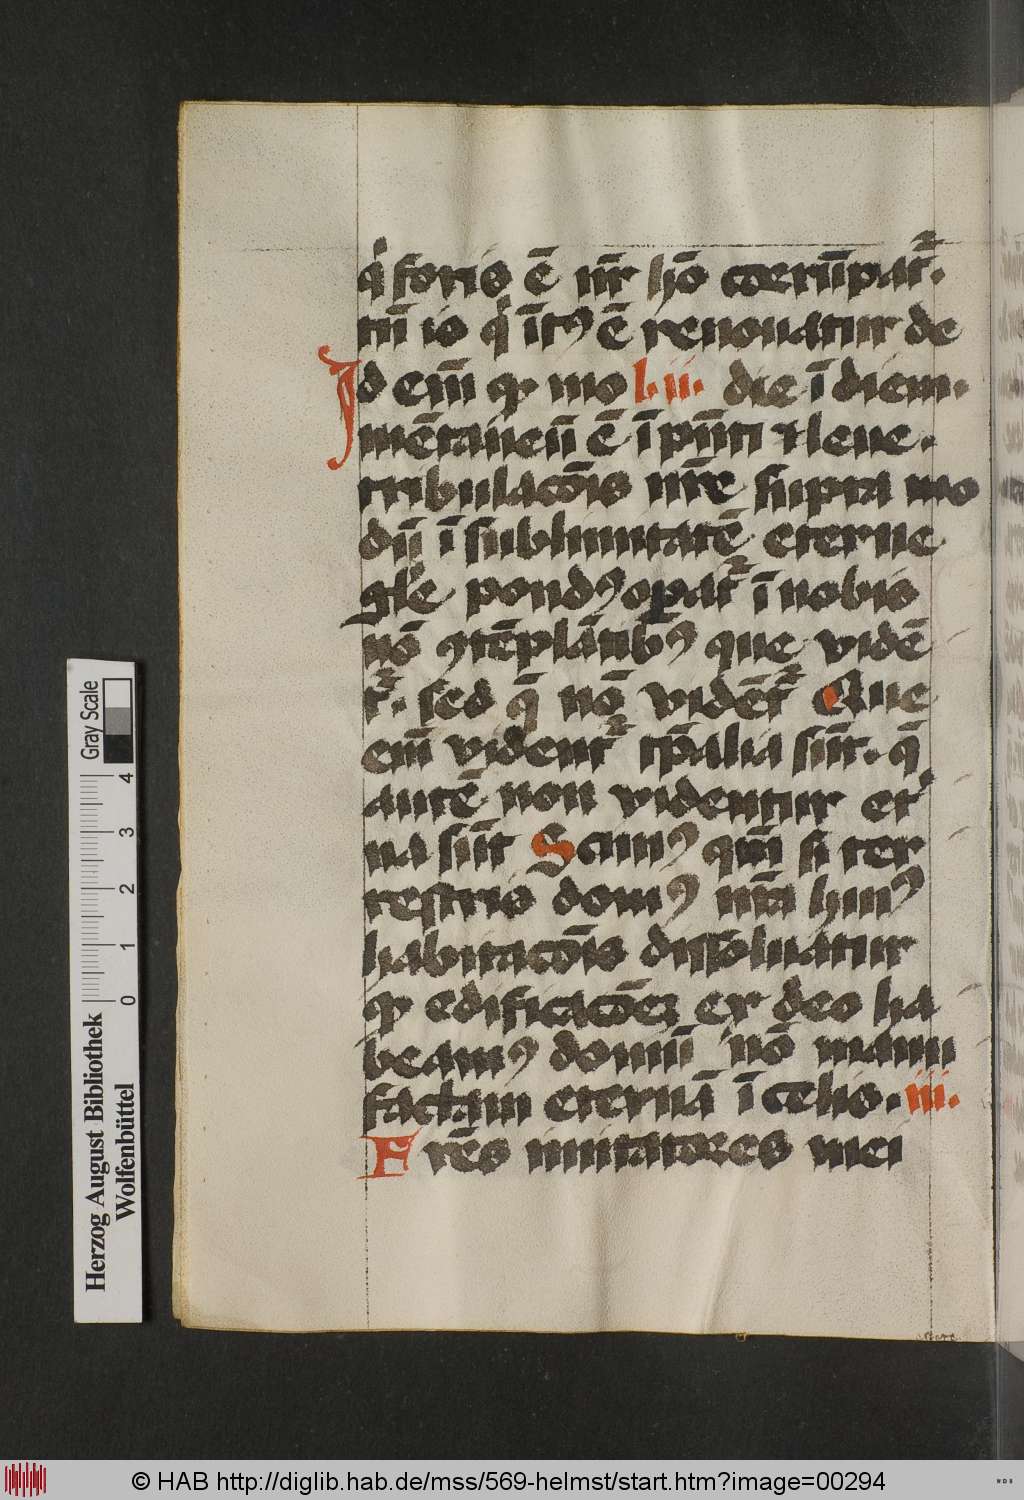 qͥ foris ē nr̄ hō corrūpat᷑.
tn̄ is qͥ ītꝰ ē renouatur de
Id em̄ qꝫ mo l. ii. die ī diem.
mētaneū ē ī pn̄ti ⁊ leue.
tribulacōis nr̄e supra mo
dū ī sublimitatē eterne
gl'e pondꝰ opat᷑ ī nobis
nō ꝯtēplātibꝰ que vidē
t᷑. sed q̄ nō vidēt᷑ Que
em̄ vident᷑ tp̄alia sūt. q̄
autē non videntur et᷑
na sūt Scimꝰ qm̄ si ter
restris domꝰ nr̄a huiꝰ
habitacōis dissoluatur
qꝫ edificacōeꝫ ex deo ha
beamꝰ domū nō manu
factam eternā ī celis. iii.
Fr̄es imitatores mei
Gray Scale
4
3
2
1
0
Herzog August Bibliothek
Wolfenbüttel
© HAB http://diglib.hab.de/mss/569-helmst/start.htm?image=00294